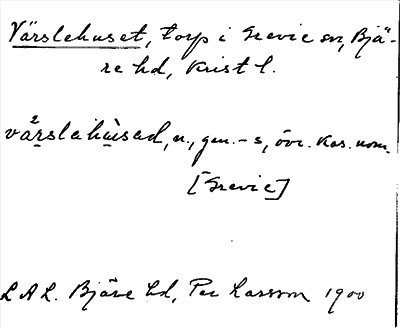 Värslehuset, torp i Grevie sn, Bjä-
re hd, Krist l.
vä²rslehùsad, n., gen. -s, övr. kas. nom.
[Grevie]
LAL. Bjäre hd, Per Larsson 1900